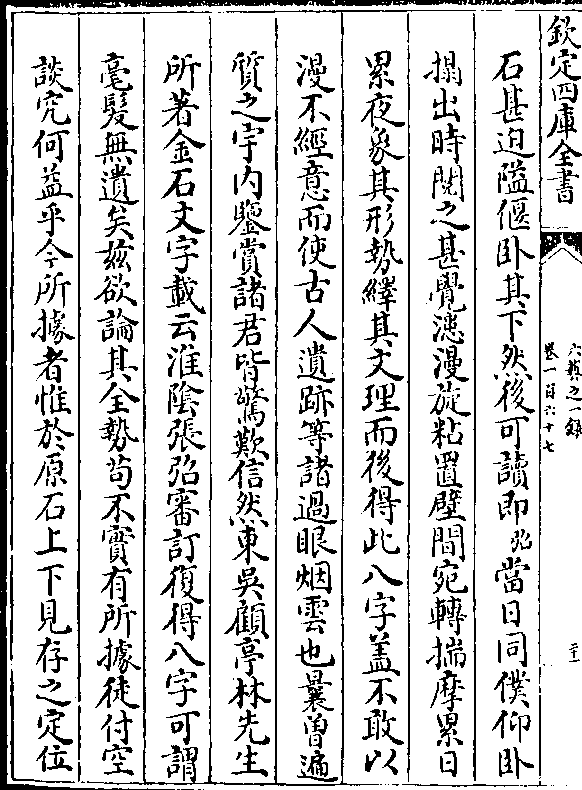 欽定四庫全書
六藝之一錄
卷一百六十七
二十一
石甚迫隘偃卧其下然後可讀即弨當日同僕仰卧
搨出時閱之甚覺漶漫旋粘置壁間宛轉揣摩累日
累夜象其形勢繹其文理而後得此八字盖不敢以
漫不經意而使古人遺跡等諸過眼烟雲也曩曽遍
質之宇内鑒賞諸君皆驚歎信然東吳顧亭林先生
所著金石文字載云淮陰張弨審訂復得八字可謂
毫髮無遺矣兹欲論其全勢茍不實有所據徒付空
談究何益乎今所據者惟於原石上下見存之定位